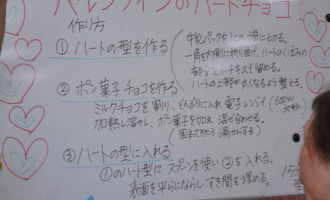 バレンタインのハートチョコ
作り方
① ハートの型を作る
(牛乳パックを1cm幅に切る。
一角を内側に折り曲げ、ハートのくぼみの
部分をホチキスで留める。
ハートの上部が丸くなるよう整える。)
② ポン菓子チョコを作る
ミルクチョコを割り、どんぶりに入れ電子レンジで(600W
加熱し溶かし、ポン菓子を加え混ぜ合わせる。
(固まってきたら湯せんする)
③ ハートの型に入れる
①のハート型にスプーンを使い②を入れる。
表面を平らにならしすき間を埋める。
15分
型